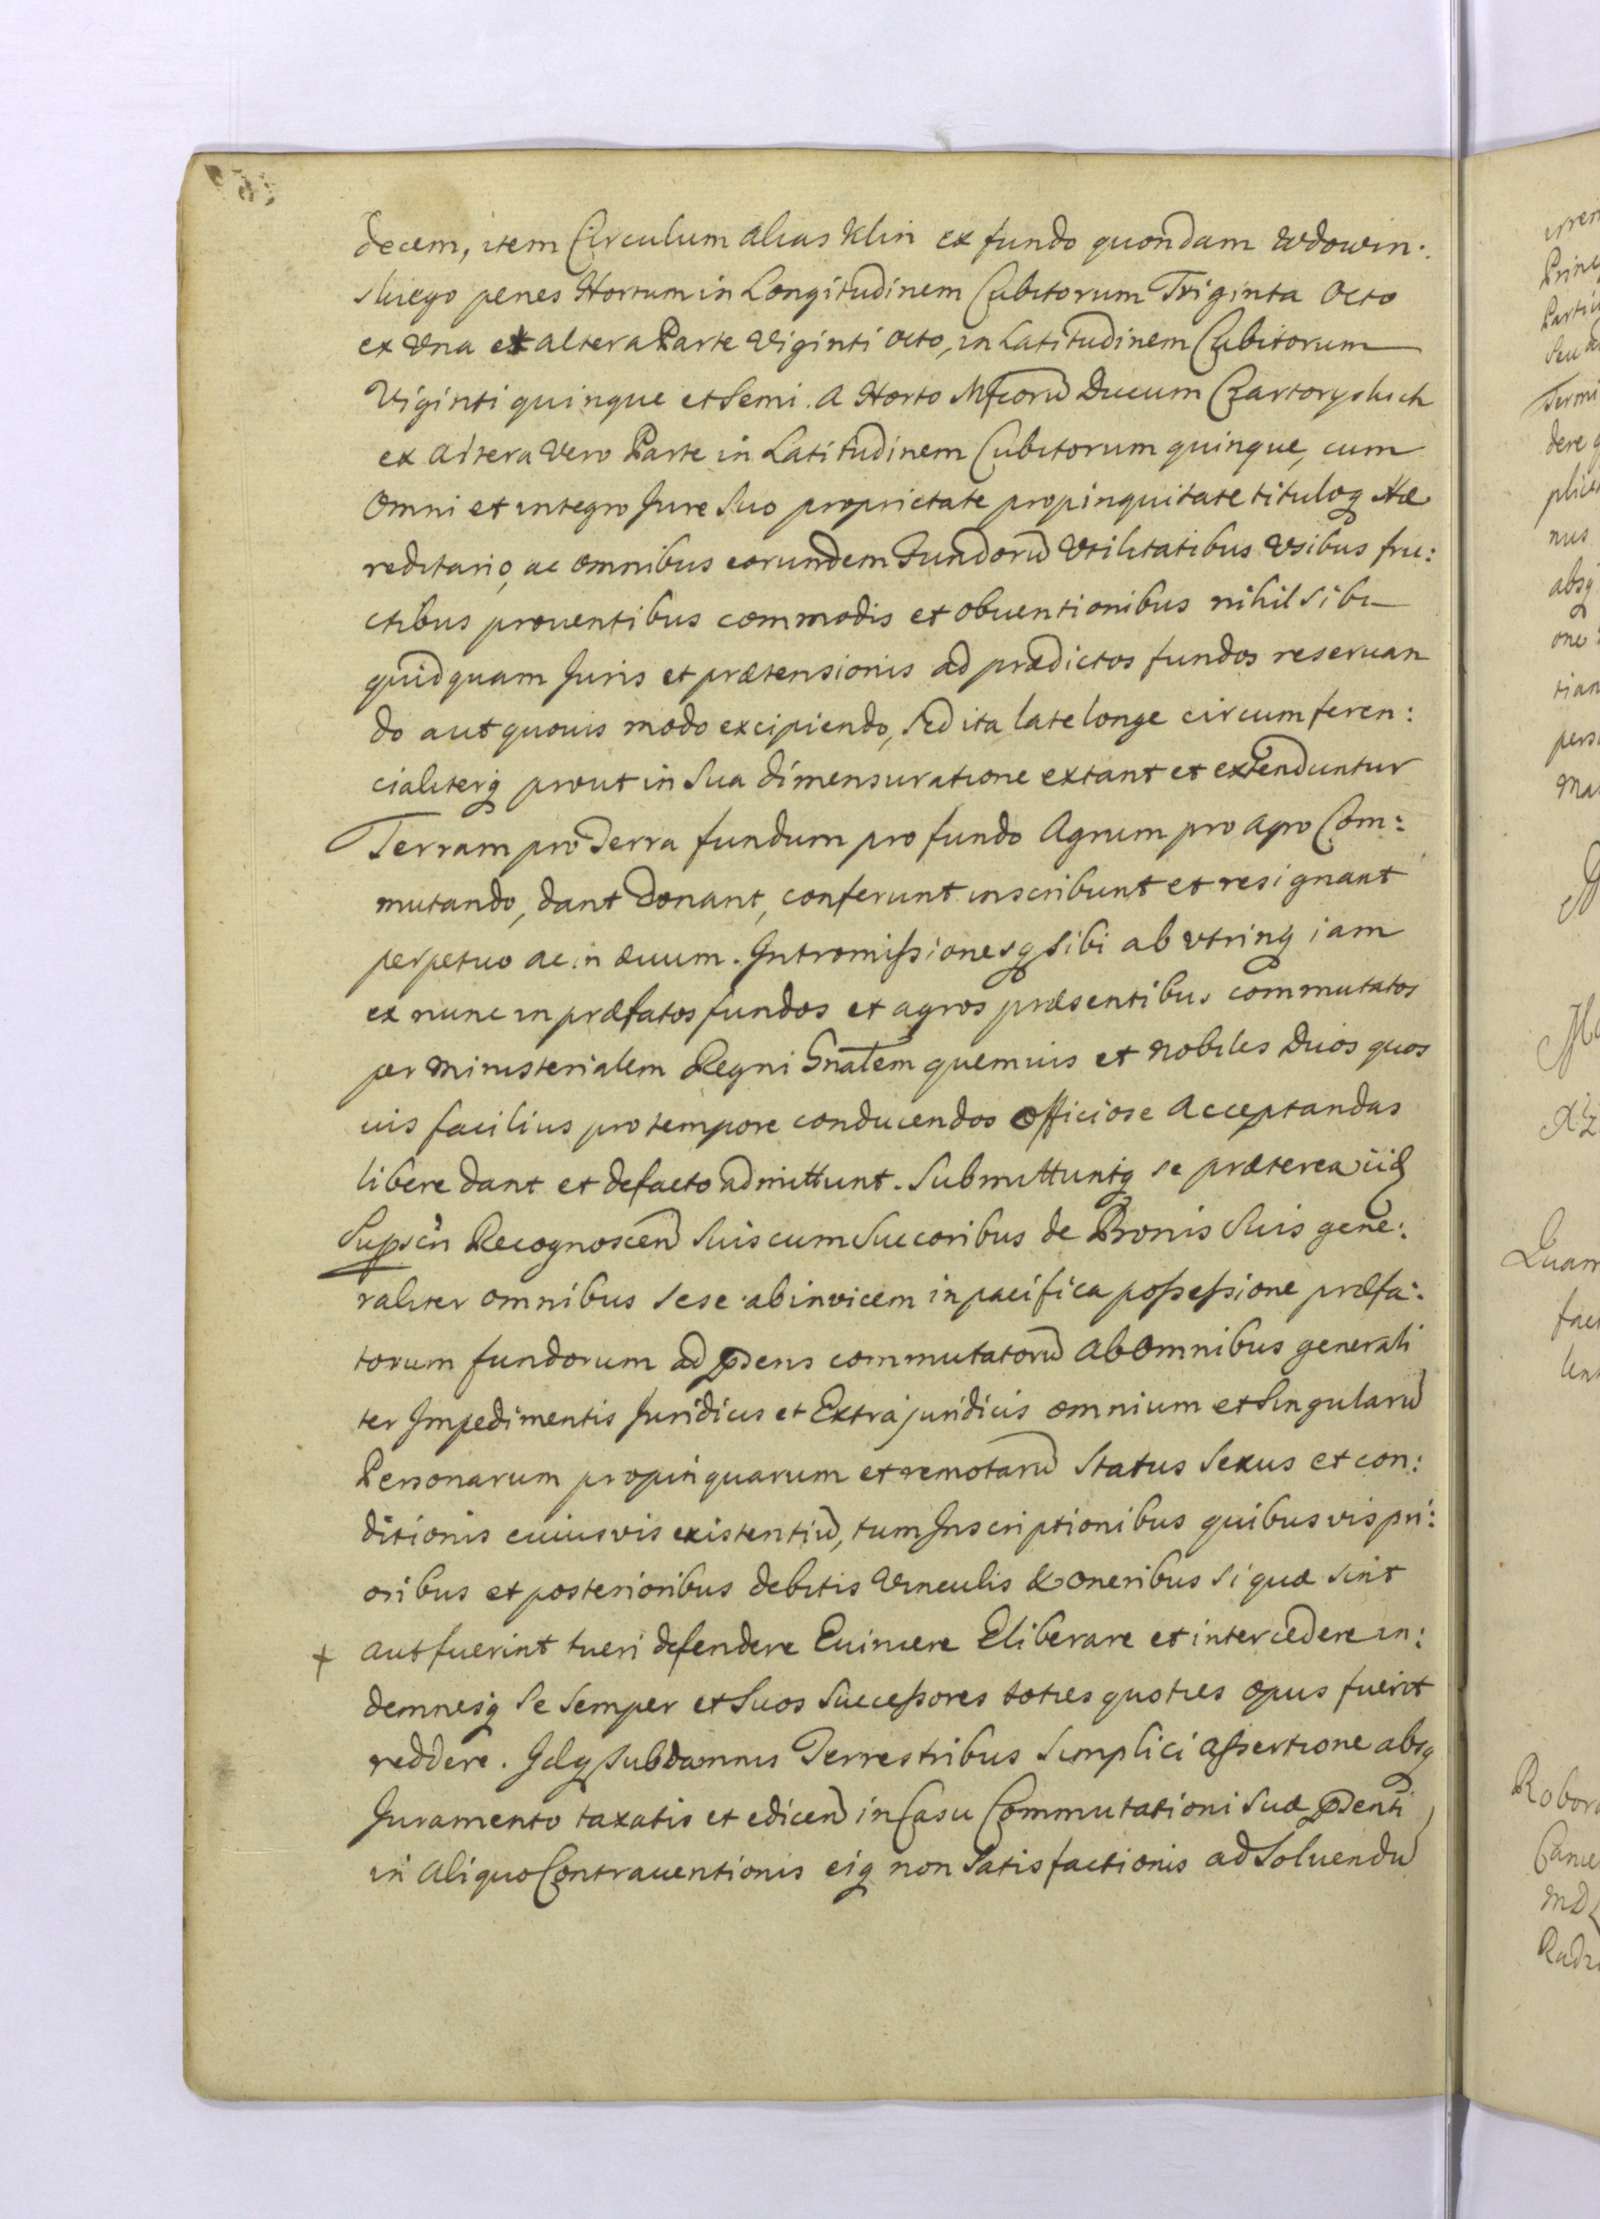 decem, item Circulum alias Klin ex fundo quondam Wdowin:
skiego penes Hortum in Longitudinem Cubitorum Triginta Octo
ex Una et altera Parte Viginti octo, in Latitudinem Cubitorum
Viginti quinque et Semi. A Horto Mfcorũ Ducum Czartoryskich
ex Altera Vero Parte in Latitudinem Cubitorum quinque, cum
Omni et integro Jure Suo proprietate propinquitate tituloq Hæ
reditario, ac omnibus eorundem Fundorũ Utilitatibus Usibus fru:
ctibus prouentibus commodis et obuentionibus nihil Sibi
quidquam Juris et prætensionis ad prædictos fundos reseruan
do aut quouis modo excipiendo, Sed ita late longe circumferen:
cialiterq prout in Sua dimensuratione extant et extenduntur
Terram pro Terra fundum pro fundo Agrum pro agro Com:
mutando, dant donant, conferunt inscribunt et resignant
perpetuo ac in æuum. Intromissionesq Sibi ab utrinq iam
ex nunc in præfatos fundos et agros præsentibus commutatos
per Ministerialem Regni Gnalem quemuis et Nobiles Duos quos
uis facilius pro tempore conducendos officiose Acceptandas
libere dant et defacto admittunt. Submittuntq se præterea iid
Supscñ Recognoscen Suis cum Succoribus de Bonis Suis gene:
raliter omnibus Sese abinvicem in pacifica possessione præfa:
torum fundorum ad psens commutatorũ ab omnibus generali
ter Impedimentis Juridicis et Extrajuridicis omnium et Singularũ
Personarum propinquarum et remotarũ Status Sexus et con:
ditionis cuiusvis existentiũ, tum Inscriptionibus quibusvis pri:
oribus et posterioribus debitis Vinculis & oneribus Si quæ sint
+ aut fuerint tueri defendere Euincere Eliberare et intercedere in:
demnesq Se Semper et Suos Successores toties quoties opus fuerit
reddere. Idq Sub damnis Terrestribus Simplici assertione absq
Juramento taxatis et edicen in Casu Commutationi Suæ psenti
in Aliquo Contrauentionis eiq non Satisfactionis ad Soluendũ